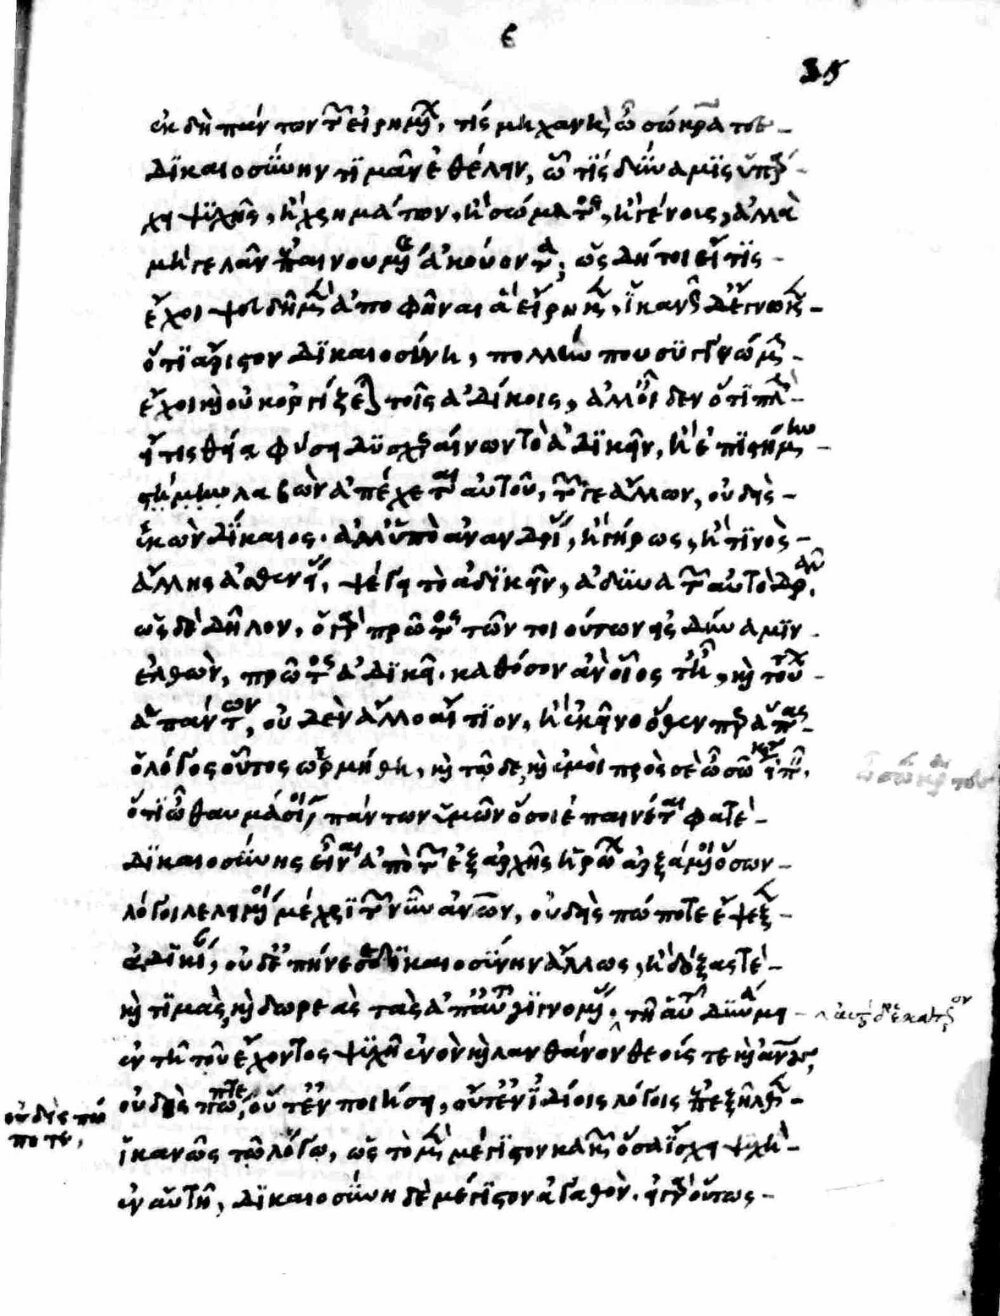 ἐκ δὴ πάντων τῶν εἰρημένων, τίς μηχανὴ ὦ σώκρατες
δϊκαιοσύνην τϊμᾶν ἐθέλειν, ᾧ τϊς δύναμϊς ὑπάρ-
χει ψϋχῆς, ἢ χρημάτων, ἢ σώματος, ἢ γένους, ἀλλὰ
μὴ γελᾶν ἐπαινουμένης ἀκούοντα; ὡς δή τοι εἴ τϊς
ἔχοι ψεῦδος μὲν ἀποφῆναι ἃ εἰρήκαμεν, ἱκανῶς δὲ ἔγνωκεν
ὅτϊ ἄριστον δϊκαιοσύνη, πολλήν που συγγνώμην
ἔχοι καὶ οὐκ ὀργίζεται τοῖς ἀδίκοις, ἀλλ' οἶδεν ὅτϊ πλὴν
εἴ τις θείᾳ φύσει δϋσχεραίνων τὸ ἀδϊκεῖν, ἢ ἐπϊστήμην
στήμην λαβὼν ἀπέχεται αὐτοῦ, τῶν γε ἄλλων, οὐδεὶς
ἑκὼν δίκαιος. ἀλλ' ὑπὸ ἀνανδρίας, ἢ γήρως, ἤ τϊνος
ἄλλης ἀσθενείας, ψέγει τὸ ἀδϊκεῖν, ἀδϋνατῶν αὐτὸ δρᾶν.
ὡς δὲ δῆλον. ὁ γὰρ πρῶτος τῶν τοιούτων εἰς δύναμϊν
ἐλθὼν, πρῶτος ἀδϊκεῖ. καθόσον ἂν οἷος τ' ᾖ, καὶ τούτων
ἁπάντων, οὐδὲν ἄλλο αἴτϊον, ἢ ἐκεῖνο ὅθεν περ ἅπας
ὁ λόγος οὗτος ὥρμησε, καὶ τῷδε, καὶ ἐμοὶ πρὸς σὲ ὦ σώκρατες εἰπεῖν.
ὅτϊ ὦ θαυμάσιε, πάντων ὑμῶν ὅσοι ἐπαινέται φατὲ
δϊκαιοσύνης εἶναι ἀπὸ τῶν ἐξ ἀρχῆς ἡρώων ἀρξάμενοι ὅσων
λόγοι λελειμμένοι μέχρϊ τῶν νῦν ἀνθρώπων, οὐδεὶς πώποτε ἔψεξεν
ἀδϊκίαν, οὐδ' ἐπῄνεσε δϊκαιοσύνην ἄλλως, ἢ δόξας τὲ
καὶ τϊμὰς, καὶ δωρεὰς τὰς ἀπ' αὐτῶν γϊγνομένας, τῇ αὐτοῦ δϋνάμει
ἐν τῇ τοῦ ἔχοντος ψϋχῇ ἐνὸν καὶ λανθάνον θεούς τε καὶ ἀνθρώπους,
οὐδεὶς πώποτε, οὔτ' ἐν ποιήσει, οὔτ' ἐν ἰδίοις λόγοις ἐπεξῆλθεν
ἱκανῶς τῷ λόγῳ, ὡς τὸ μὲν μέγϊστον κακῶν ὅσα ἴσχει ψϋχὴ
ἐν αὑτῇ, δϊκαιοσύνη δὲ μέγϊστον ἀγαθὸν. εἰ γὰρ οὕτως
οὐδεὶς πώ
ποτε,